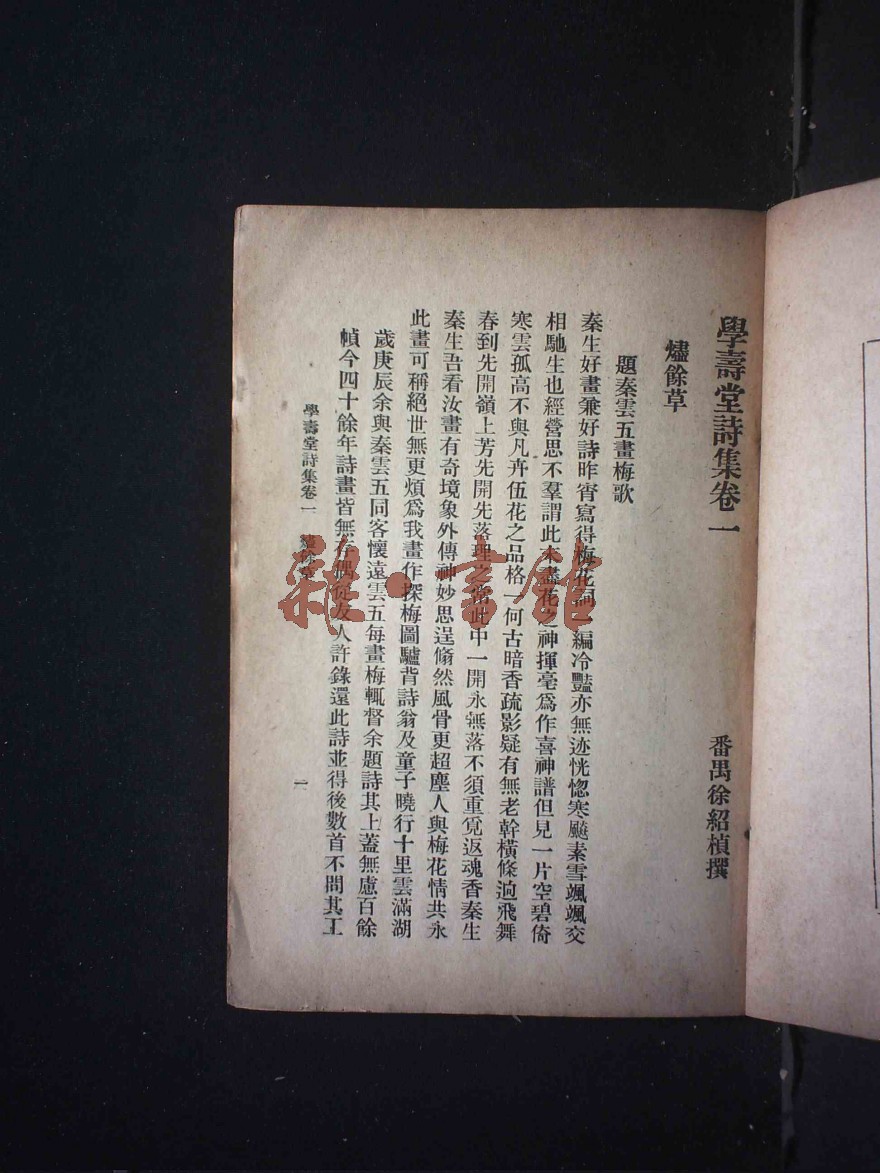 學壽堂詩集卷一
番禺徐紹楨撰
燼餘草
題秦雲五畫梅歌
秦生好畫兼好詩昨宵寫得梅花詞一編冷豔亦無迹恍惚寒飈素雪颯颯交
相馳生也經營思不羣謂此本盡花之神揮毫爲作喜神譜但見一片空碧倚
寒雲孤高不與凡卉伍花之品格一何古暗香疏影疑有無老幹橫條逈飛舞
春到先開嶺上芳先開先落理之常此中一開永無落不須重覓返魂香秦生
秦生吾看汝畫有奇境象外傳神妙思逞翛然風骨更超塵人與梅花情共永
此畫可稱絕世無更煩爲我畫作探梅圖驢背詩翁及童子曉行十里雲滿湖
歲庚辰余與秦雲五同客懷遠雲五每畫梅輒督余題詩其上蓋無慮百餘
幀今四十餘年詩畫皆無存偶從友人許錄還此詩並得後數首不問其工
學壽堂詩集卷一 燼餘草
一
雜·書館